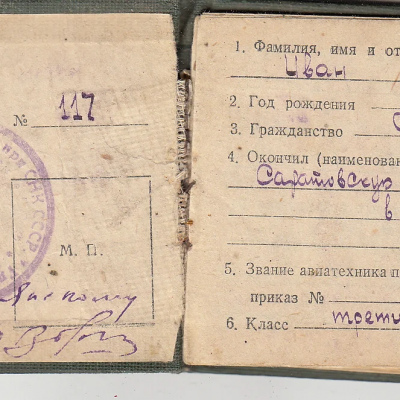 № 117
при СНК СССР
М. П.
1. Фамилия, имя и от
Иван
2. Год рождения
3. Гражданство С
4. Окончил (наименован
Саратовскую
в
5. Звание авиатехника п
приказ №
6. Класс трети